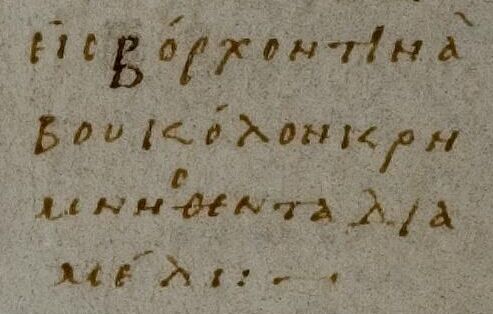 εις βόρχον τινὰ
βουκόλον κρη
μνησθεντα δια
μέλι:—